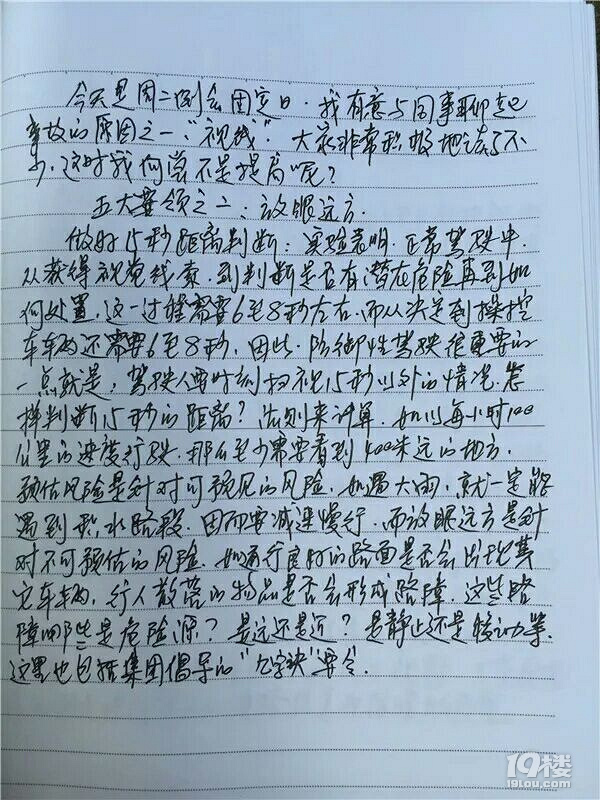 今天是周二例会固定日.我有意与同事聊起
事故的原因之一:"视线".大家非常积极地谈了不
少,这时我何尝不是提高呢?
五大要领之二:放眼远方.
做好15秒距离判断:实验表明.正常驾驶中.
从获得视觉线索.到判断是否有潜在危险再到如
何处置,这一过程需要6至8秒左右.而从决定到操控
车车辆还需要6至8秒.因此.防御性驾驶很重要的
一点就是,驾驶人要时刻扫视15秒以外的情况.怎
样判断15秒的距离?法则来计算.如以每小时100
公里的速度行驶.那么至少需要看到400米远的地方.
预估风险是针对可预见的风险.如遇大雨,就一定能
遇到积水路段.因而要减速慢行.而放眼远方是针
对不可预估的风险.如通行良好的路面是否会出现其
它车辆,行人散落的物品是否会形成路障.这些路
障哪些是危险源?是远还是近?是静止还是移动等.
这里也包括集团倡导的"九字诀"要令.
19楼
19lou.com